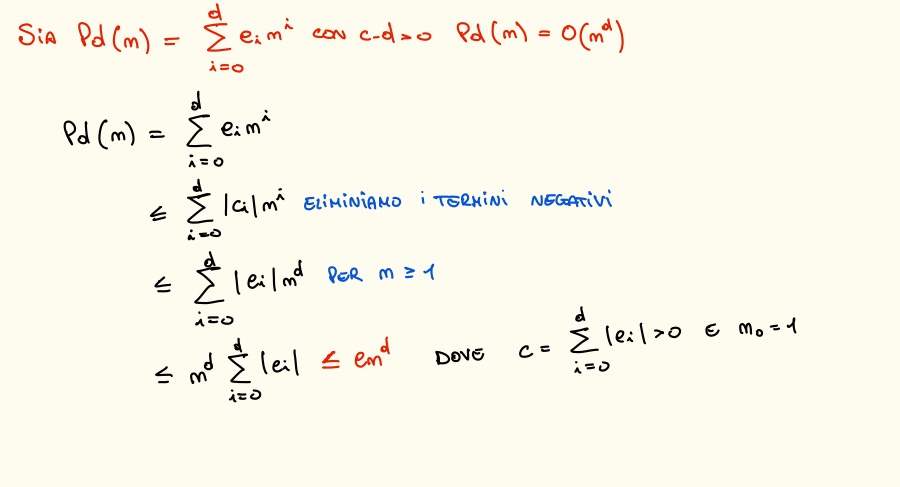 SIA Pd(m) = ∑_{i=0}^{d} e_i m^i CON c-d>0 Pd(m) = O(m^d)
Pd(m) = ∑_{i=0}^{d} e_i m^i
≤ ∑_{i=0}^{d} |c_i| m^i ELIMINIAMO I TERMINI NEGATIVI
≤ ∑_{i=0}^{d} |e_i| m^d PER m ≥ 1
≤ m^d ∑_{i=0}^{d} |e_i| ≤ em^d DOVE c = ∑_{i=0}^{d} |e_i| >0 E m_0 = 1